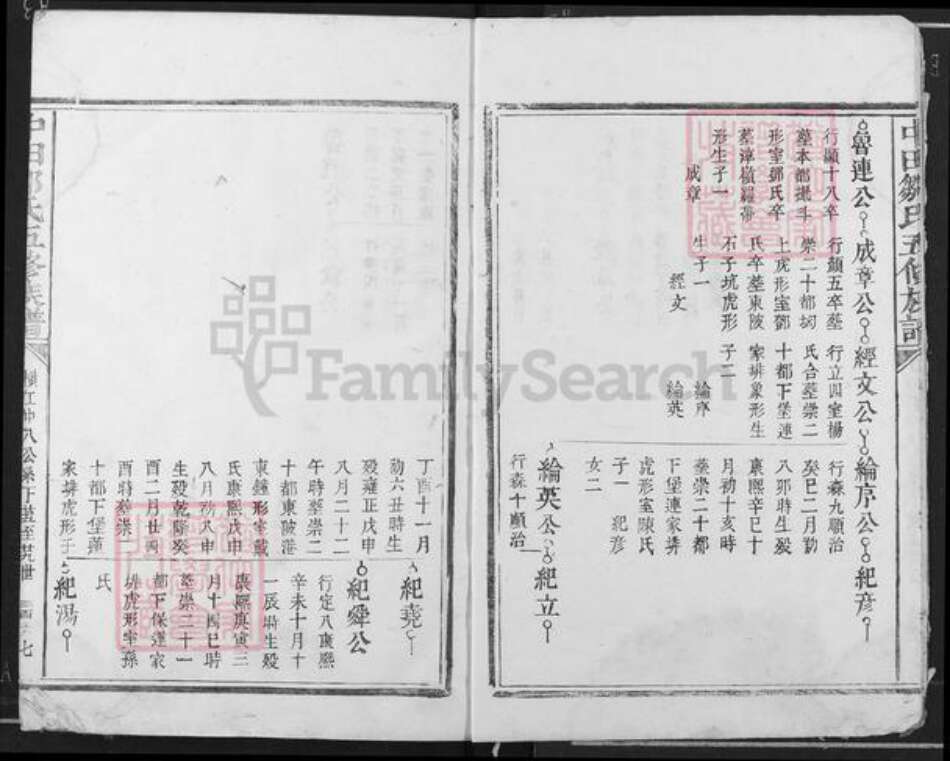 中田鄒氏五修族譜
魯連公
行顯十八卒
墓本都
形室鄧氏卒
形生子一
成章
成章公
行顯五卒墓
崇二十都
上虎形室鄧
氏卒墓東陂
石子坑虎形
生子一
經文
經文公
行立四室楊
氏合墓崇二
十都下堡連
家排象形生
子二
綸序
綸英
綸序公
行森九順治
癸巳二月初
八卯時生歿
康熙辛巳十
月初十亥時
墓崇二十都
下堡連家排
虎形室陳氏
子一 紀彦
女二
紀彦
綸英公
行森十順治
紀立
丁酉十一月
初六丑時生
歿雍正戊申
八月二十二
午時墓崇二
十都東陂港
東鐘形室戴
氏康熙戊申
八月初八申
生歿乾隆癸
酉二月廿四
酉時墓崇二
十都下堡蓮
家排虎形子
紀堯
紀舜公
行定八康熙
辛未十月十
一辰時生歿
康熙庚寅三
月十四巳時
墓崇二十一
都下保連家
排虎形室孫
氏
紀鴻
中田鄒氏五修族譜
七
FamilySearch